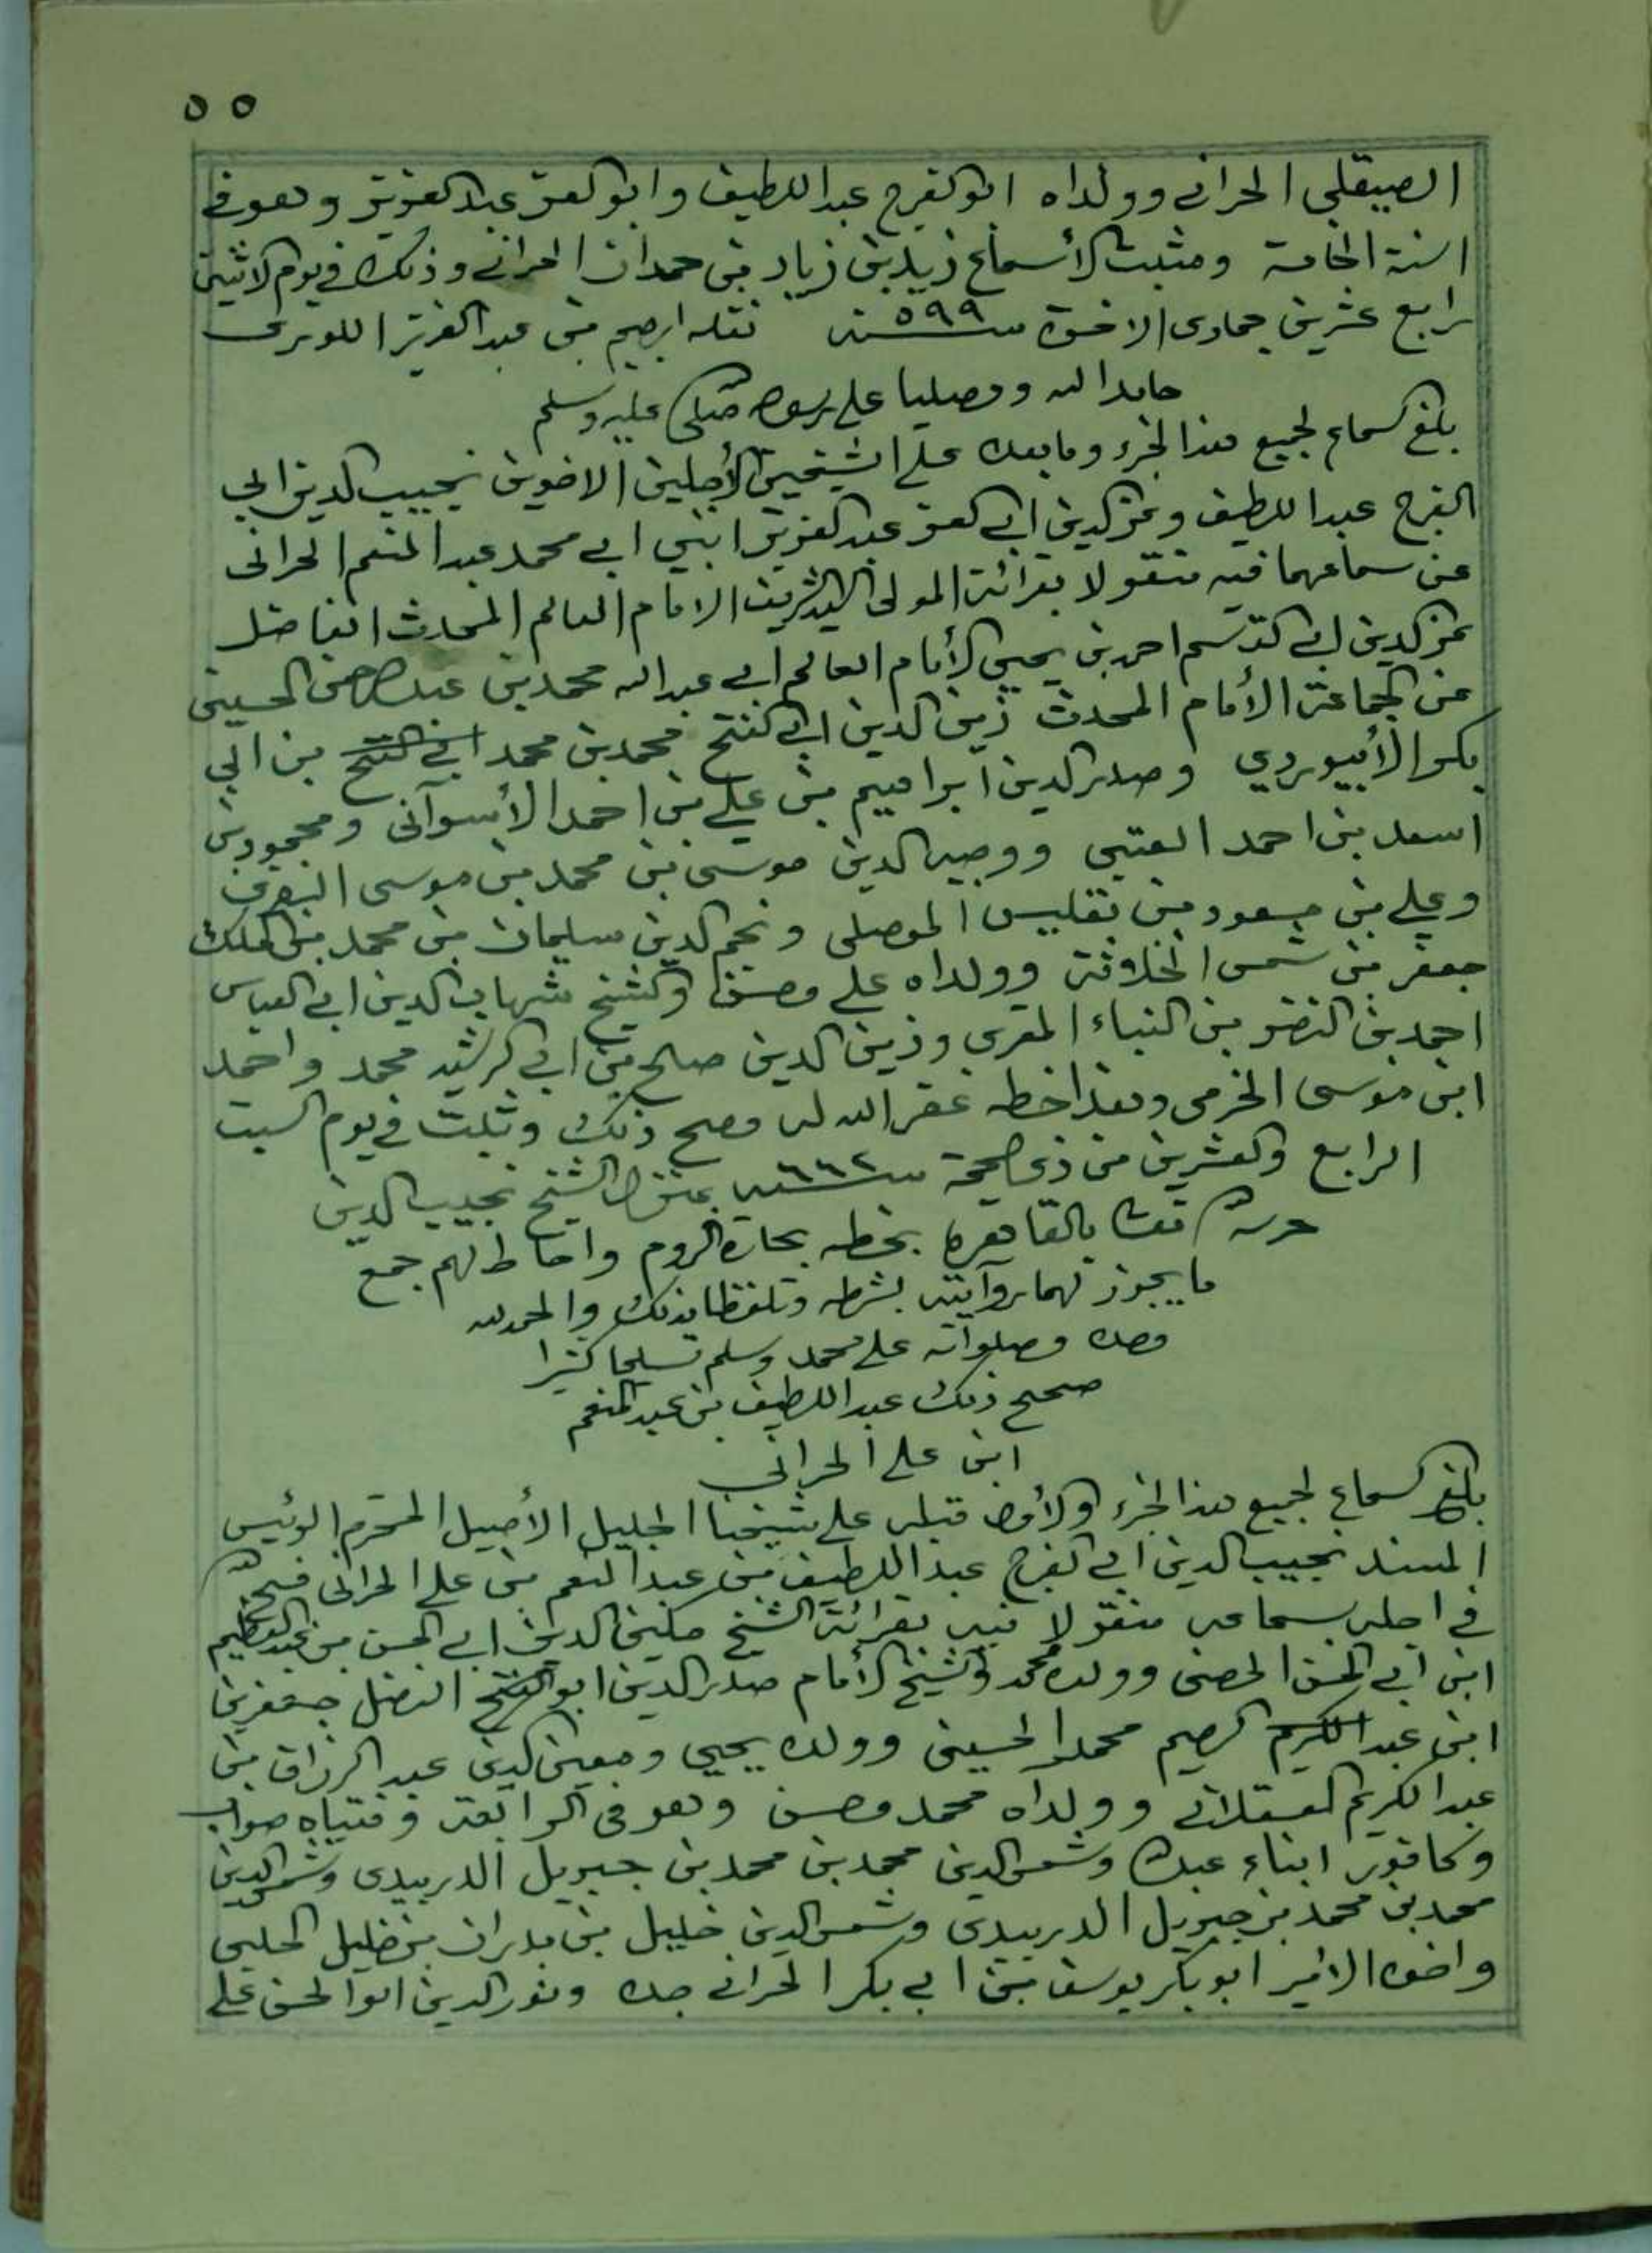 ٥٥
الصيقلي الحراني وولداه ابو الفرج عبد اللطيف وابو العز عبد العزيز وهو في
السنة الخامسة ومثبت الأسماع زيد بن زياد بن حمدان الحراني وذلك في يوم الاثنين
رابع عشرين جمادى الاخرة سنة ٥٩٩ نقله ابرهيم بن عبد العزيز اللورى
حامدا لله ومصليا على رسوله صلى عليه وسلم
بلغ السماع لجميع هذا الجزء وما بعده على الشيخين الأجلين الاخوين نجيب الدين ابي
الفرج عبد اللطيف وعز الدين ابي العز عبد العزيز ابني ابي محمد عبد المنعم الحرانى
عن سماعهما فيه منقولا بقرائة المولى السيد الشريف الامام العالم المحدث الفاضل
عز الدين ابي القسم احمد بن يحيى الأمام العالم ابي عبد الله محمد بن عبد الرحمن الحسينى
عن الجماعة الأمام المحدث زين الدين ابي الفتح محمد بن محمد ابي الفتح بن ابي
بكر الأبيوردي وصدر الدين ابراهيم بن علي بن احمد الأسوآنى ومحمود بن
اسعد بن احمد العتبى ووجيه الدين موسى بن محمد بن موسى
وعلي بن مسعود بن نفليس الموصلى ونجم الدين سليمان بن محمد بن الملك
جعفر بن شمس الخلافة وولداه علي وحسن والشيخ شهاب الدين ابي العباس
احمد بن النضر بن البناء المقرى وزين الدين صالح بن ابي الرشيد محمد واحمد
ابن موسى الخرمى وهذا خطه غفر الله له وصح ذلك وثبت في يوم السبت
الرابع والعشرين من ذى الحجة سنة ٦٦٢ بمنزل الشيخ نجيب الدين
حرسه بالقاهرة بخطه بحارة الروم واجاز لهم جمع
ما يجوز لهما روآيته بشرطه وتلفظا بذلك والحمد لله
وحده وصلواته على محمد وسلم تسليما كثيرا
صحيح ذلك عبد اللطيف بن عبد المنعم
ابن علي الحرانى
بلغ السماع لجميع هذا الجزء والأول قبله على شيخنا الجليل الأصيل المحترم الرئيس
المسند نجيب الدين ابي الفرج عبد اللطيف بن عبد المنعم بن علي الحرانى
في اصله سماعه منقولا فيه بقرائة الشيخ مكين الدين ابي الحسن بن عبد العظيم
ابن ابي الحسن الحصنى وولده محمد والشيخ الأمام صدر الدين ابو الفتح الفضل جعفر بن
ابن عبد الكريم الرحيم محمد الحسينى وولده يحيى ومعين الدين عبد الرزاق بن
عبد الكريم العسقلانى وولداه محمد وحسن وهو في الرابعة وفتياه صواب
وكافور ابناء عبد الله وشمس الدين محمد بن محمد بن جبريل الدربيدى وشمس الدين
محمد بن محمد بن جبريل الدربيدى وشمس الدين خليل بن بدران بن خليل الحلبى
واخوه الامير ابو بكر يوسف بن ابي بكر الحراني جده ونور الدين ابو الحسن علي